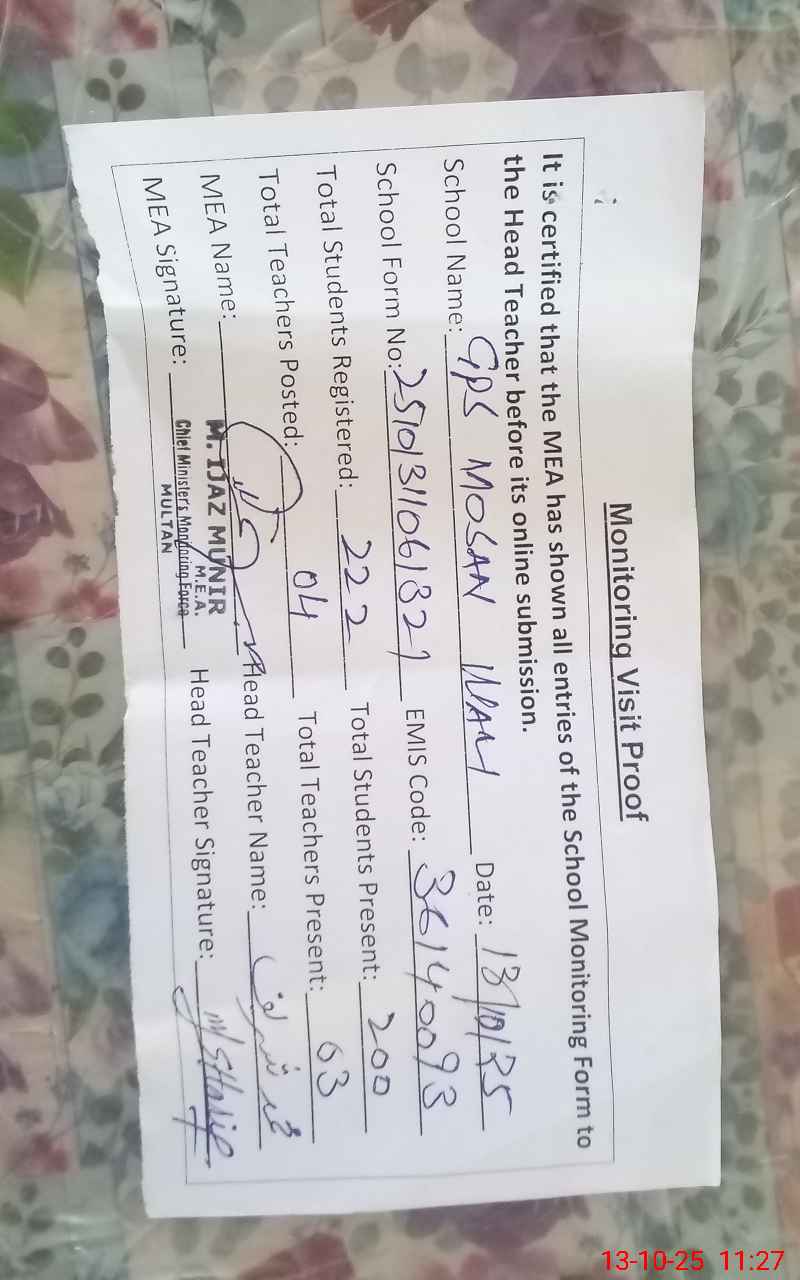 Monitoring Visit Proof
It is certified that the MEA has shown all entries of the School Monitoring Form to
the Head Teacher before its online submission.
School Name: GPS MOSAN WALI Date: 13/10/25
School Form No: EMIS Code: 36140093
Total Students Registered: 222 Total Students Present: 200
Total Teachers Posted: 04 Total Teachers Present: 03
MEA Name: Head Teacher Name: محمد شریف
M. IJAZ MUNIR
M.E.A.
MEA Signature: Head Teacher Signature: M Sharif
Chief Minister's Monitoring Force
MULTAN
13-10-25 11:27